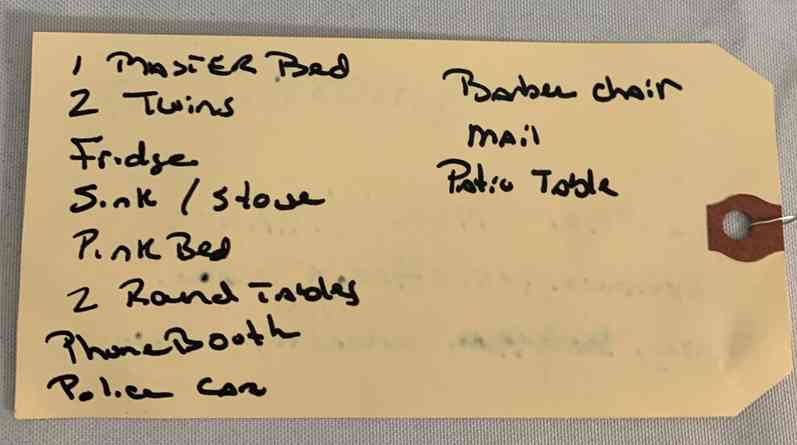 1 MASTER Bed
2 Twins
Fridge
Sink / Stove
Pink Bed
2 Round Tables
Phone Booth
Police Car
Barber chair
Mail
Patio Table